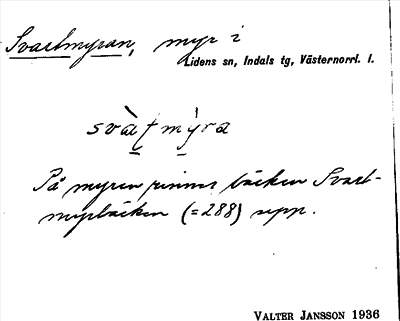 Svartmyran, myr i
Lidens sn, Indals tg, Västernorrl. l.
svàṭmỳra
På myren rinner bäcken Svart-
myrbäcken (=288) upp.
VALTER JANSSON 1936